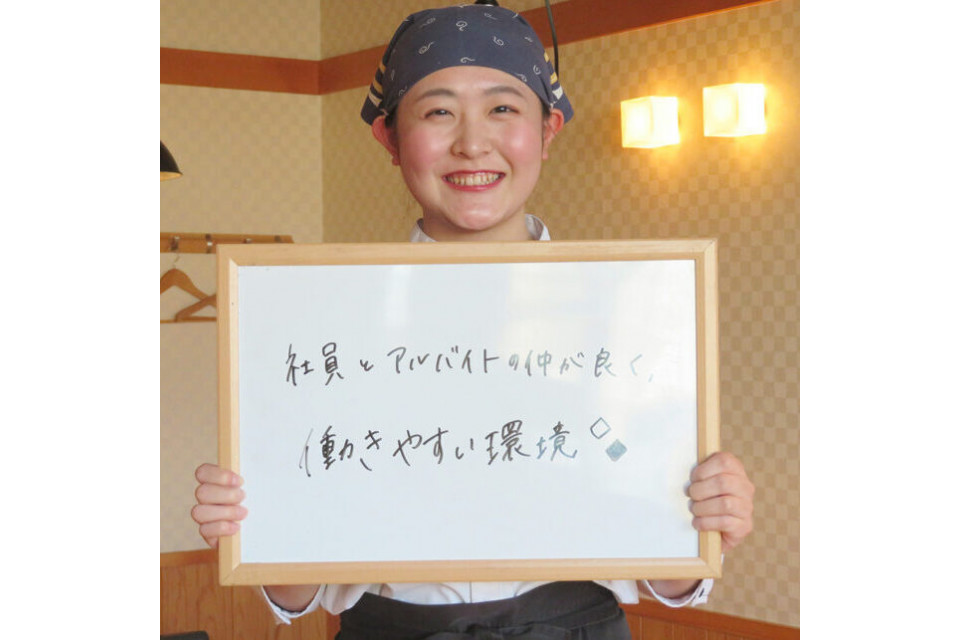 社員とアルバイトの仲が良く、
働きやすい環境